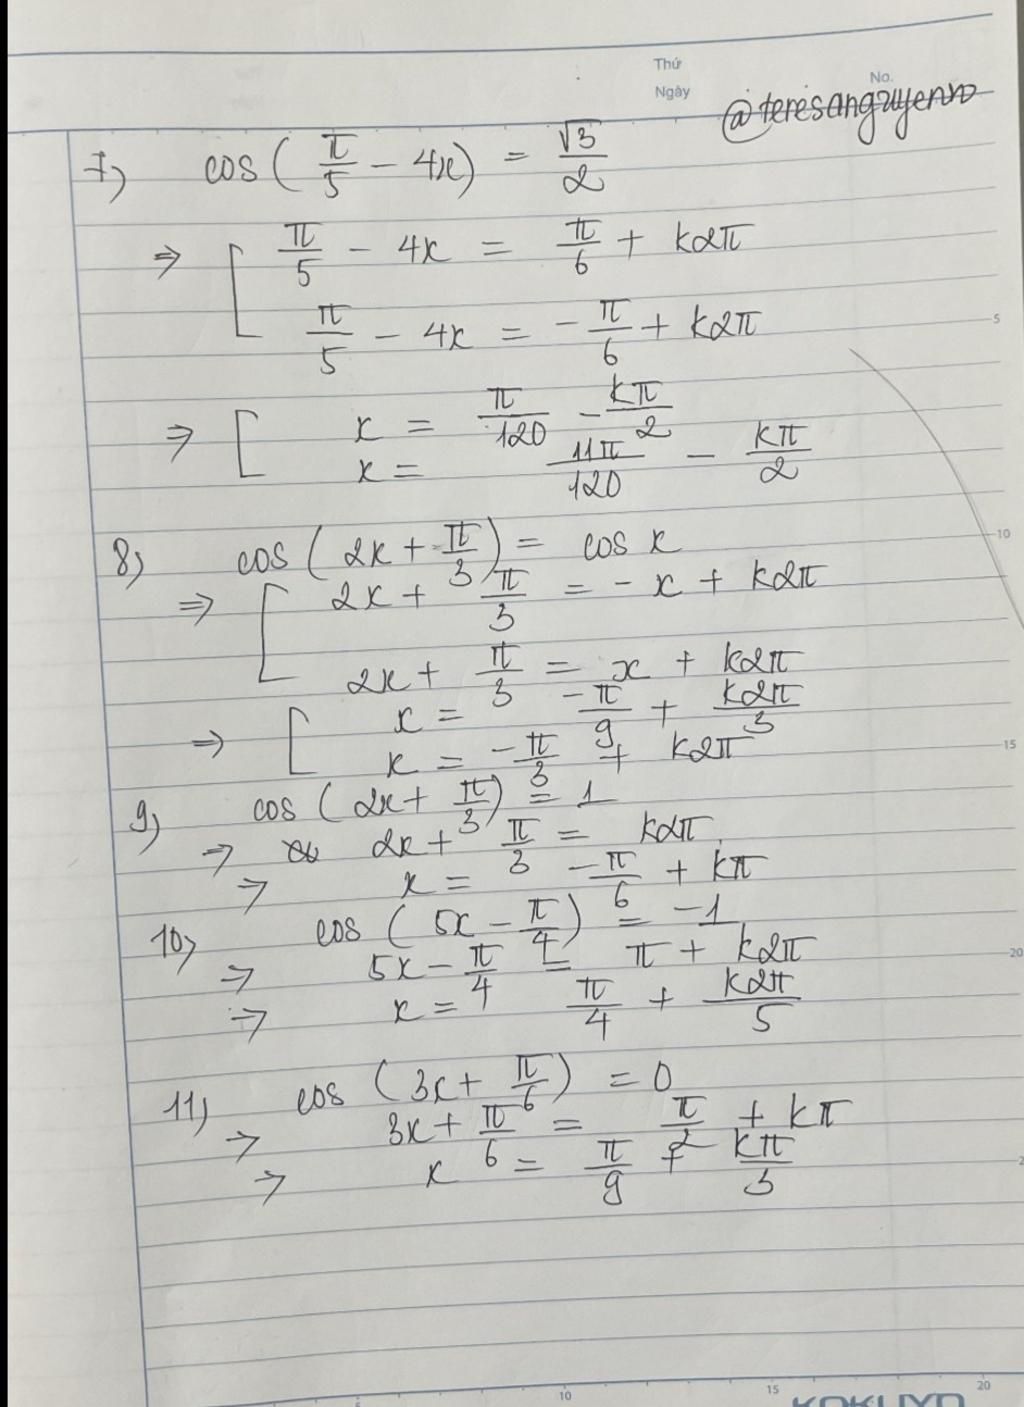 Thứ
Ngày
No.
@teresanguyenn
7) cos(π/5 - 4x) = √3/2
⇒ [ π/5 - 4x = π/6 + k2π
π/5 - 4x = -π/6 + k2π
⇒ [ x = π/120 - kπ/2
x = 11π/120 - kπ/2
8) cos(2x + π/3) = cos x
⇒ [ 2x + π/3 = -x + k2π
2x + π/3 = x + k2π
⇒ [ x = -π/9 + k2π/3
x = -π/3 + k2π
9) cos(2x + π/3) = 1
⇒ 2x + π/3 = k2π
⇒ x = -π/6 + kπ
10) cos(5x - π/4) = -1
⇒ 5x - π/4 = π + k2π
⇒ x = π/4 + k2π/5
11) cos(3x + π/6) = 0
⇒ 3x + π/6 = π/2 + kπ
⇒ x = π/9 + kπ/3
5
10
15
20
2
5
10
15
20
KOKUYO